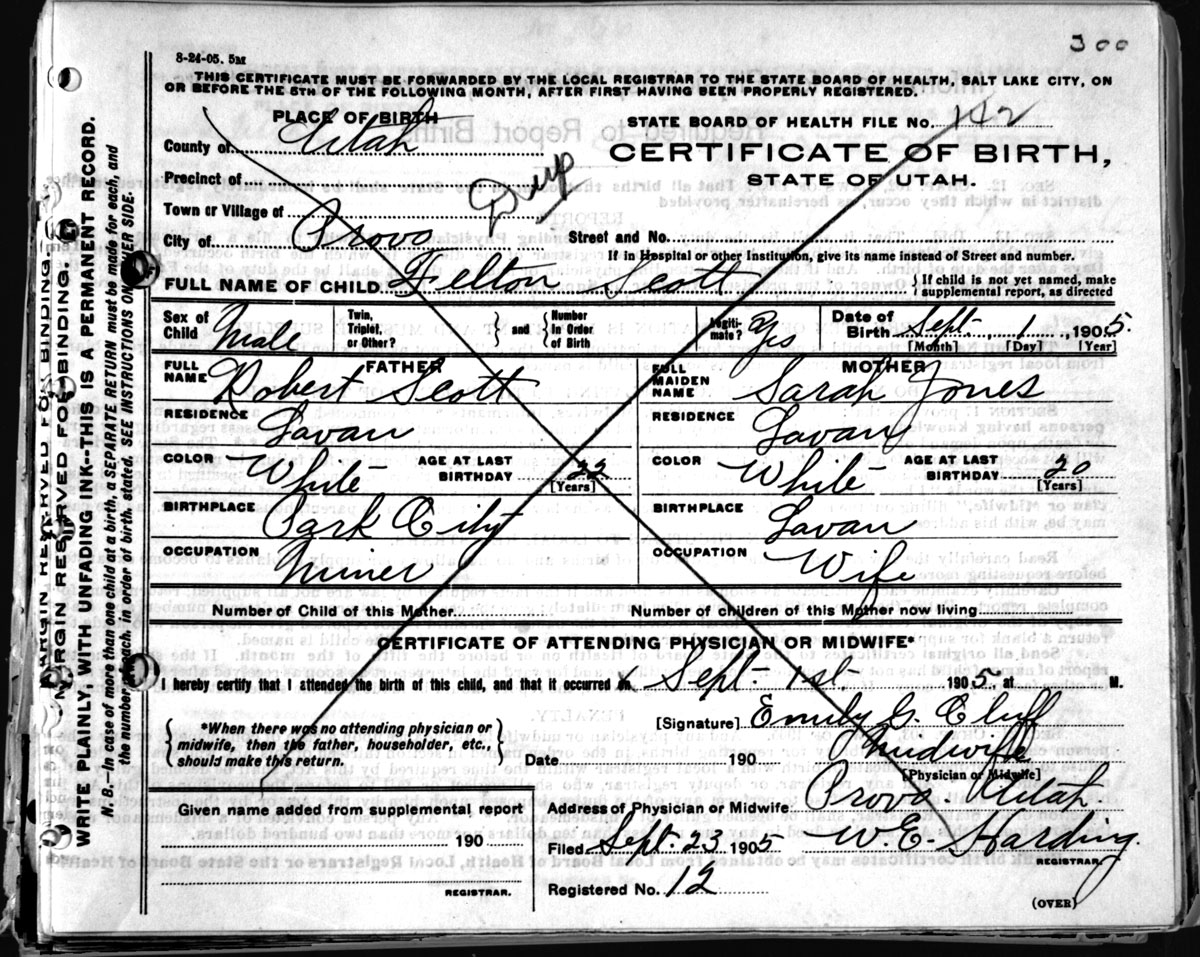 300
8-24-05. 5M
THIS CERTIFICATE MUST BE FORWARDED BY THE LOCAL REGISTRAR TO THE STATE BOARD OF HEALTH, SALT LAKE CITY, ON
OR BEFORE THE 5TH OF THE FOLLOWING MONTH, AFTER FIRST HAVING BEEN PROPERLY REGISTERED.
PLACE OF BIRTH
STATE BOARD OF HEALTH FILE NO. 142
County of Utah
CERTIFICATE OF BIRTH,
STATE OF UTAH.
Precinct of
Dup
Town or Village of
City of Provo Street and No.
If in Hospital or other Institution, give its name instead of Street and number.
FULL NAME OF CHILD Felton Scott } If child is not yet named, make
supplemental report, as directed
Sex of Child Male Twin, Triplet, or Other? } and { Number In Order of Birth Legiti-mate? Yes Date of Birth Sept. 1, 1905.
[Month] [Day] [Year]
FATHER MOTHER
FULL NAME Robert Scott FULL MAIDEN NAME Sarah Jones
RESIDENCE Lavan RESIDENCE Lavan
COLOR White AGE AT LAST BIRTHDAY 22 [Years] COLOR White AGE AT LAST BIRTHDAY 20 [Years]
BIRTHPLACE Park City BIRTHPLACE Lavan
OCCUPATION Miner OCCUPATION Wife
Number of Child of this Mother Number of children of this Mother now living
CERTIFICATE OF ATTENDING PHYSICIAN OR MIDWIFE*
I hereby certify that I attended the birth of this child, and that it occurred on Sept. 1st. 1905 at M.
{ *When there was no attending physician or
midwife, then the father, householder, etc.,
should make this return. }
[Signature] Emily G. Cluff
Midwife
Date 190
[Physician or Midwife]
Given name added from supplemental report
190
REGISTRAR.
Address of Physician or Midwife Provo. Utah.
Filed Sept. 23 1905 W. E. Harding.
REGISTRAR
Registered No. 12
(OVER)
MARGIN RESERVED FOR BINDING.
MARGIN RESERVED FOR BINDING.
WRITE PLAINLY, WITH UNFADING INK--THIS IS A PERMANENT RECORD.
N. B.--In case of more than one child at a birth, a SEPARATE RETURN must be made for each, and
the number of each, in order of birth, stated. SEE INSTRUCTIONS ON OTHER SIDE.